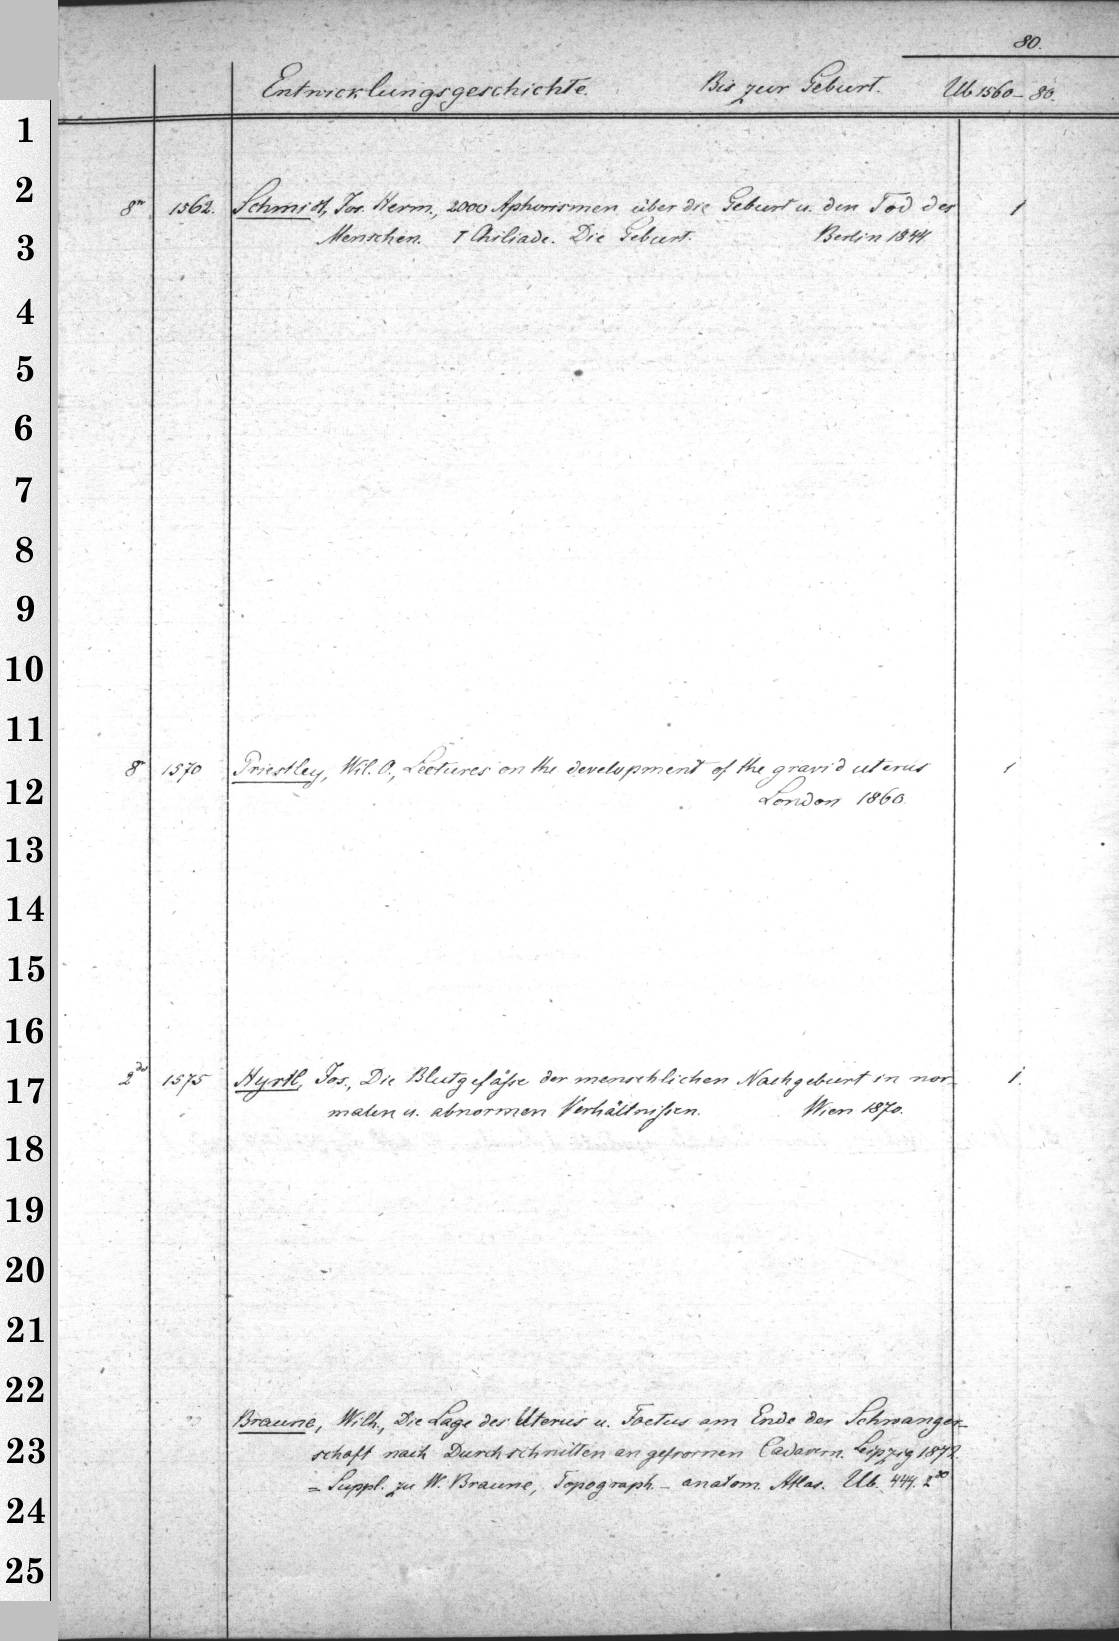 80.
Entwicklungsgeschichte. Bis zur Geburt. Ub 1560–80.
1
2
8° 1562. Schmidt, Jos. Herm., 2000 Aphorismen über die Geburt u. den Tod des 1
Menschen. I Chiliade. Die Geburt. Berlin 1844.
3
4
5
6
7
8
9
10
11
8° 1570 Priestley, Wil. O., Lectures on the development of the gravid uterus 1
12
London 1860.
13
14
15
16
2do 1575 Hyrtl, Jos., Die Blutgefässe der menschlichen Nachgeburt in nor- 1.
17
malen u. abnormen Verhältnissen. Wien 1870.
18
19
20
21
22
Braune, Wilh., Die Lage des Uterus u. Foetus am Ende der Schwanger-
23
schaft nach Durchschnitten an gefrornen Cadavern. Leipzig 1872.
= Suppl. zu W. Braune, Topograph.- anatom. Atlas. Ub. 444. 2do
24
25